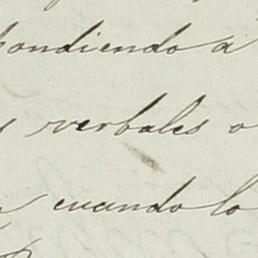 pondiendo á
verbales o
cuando lo